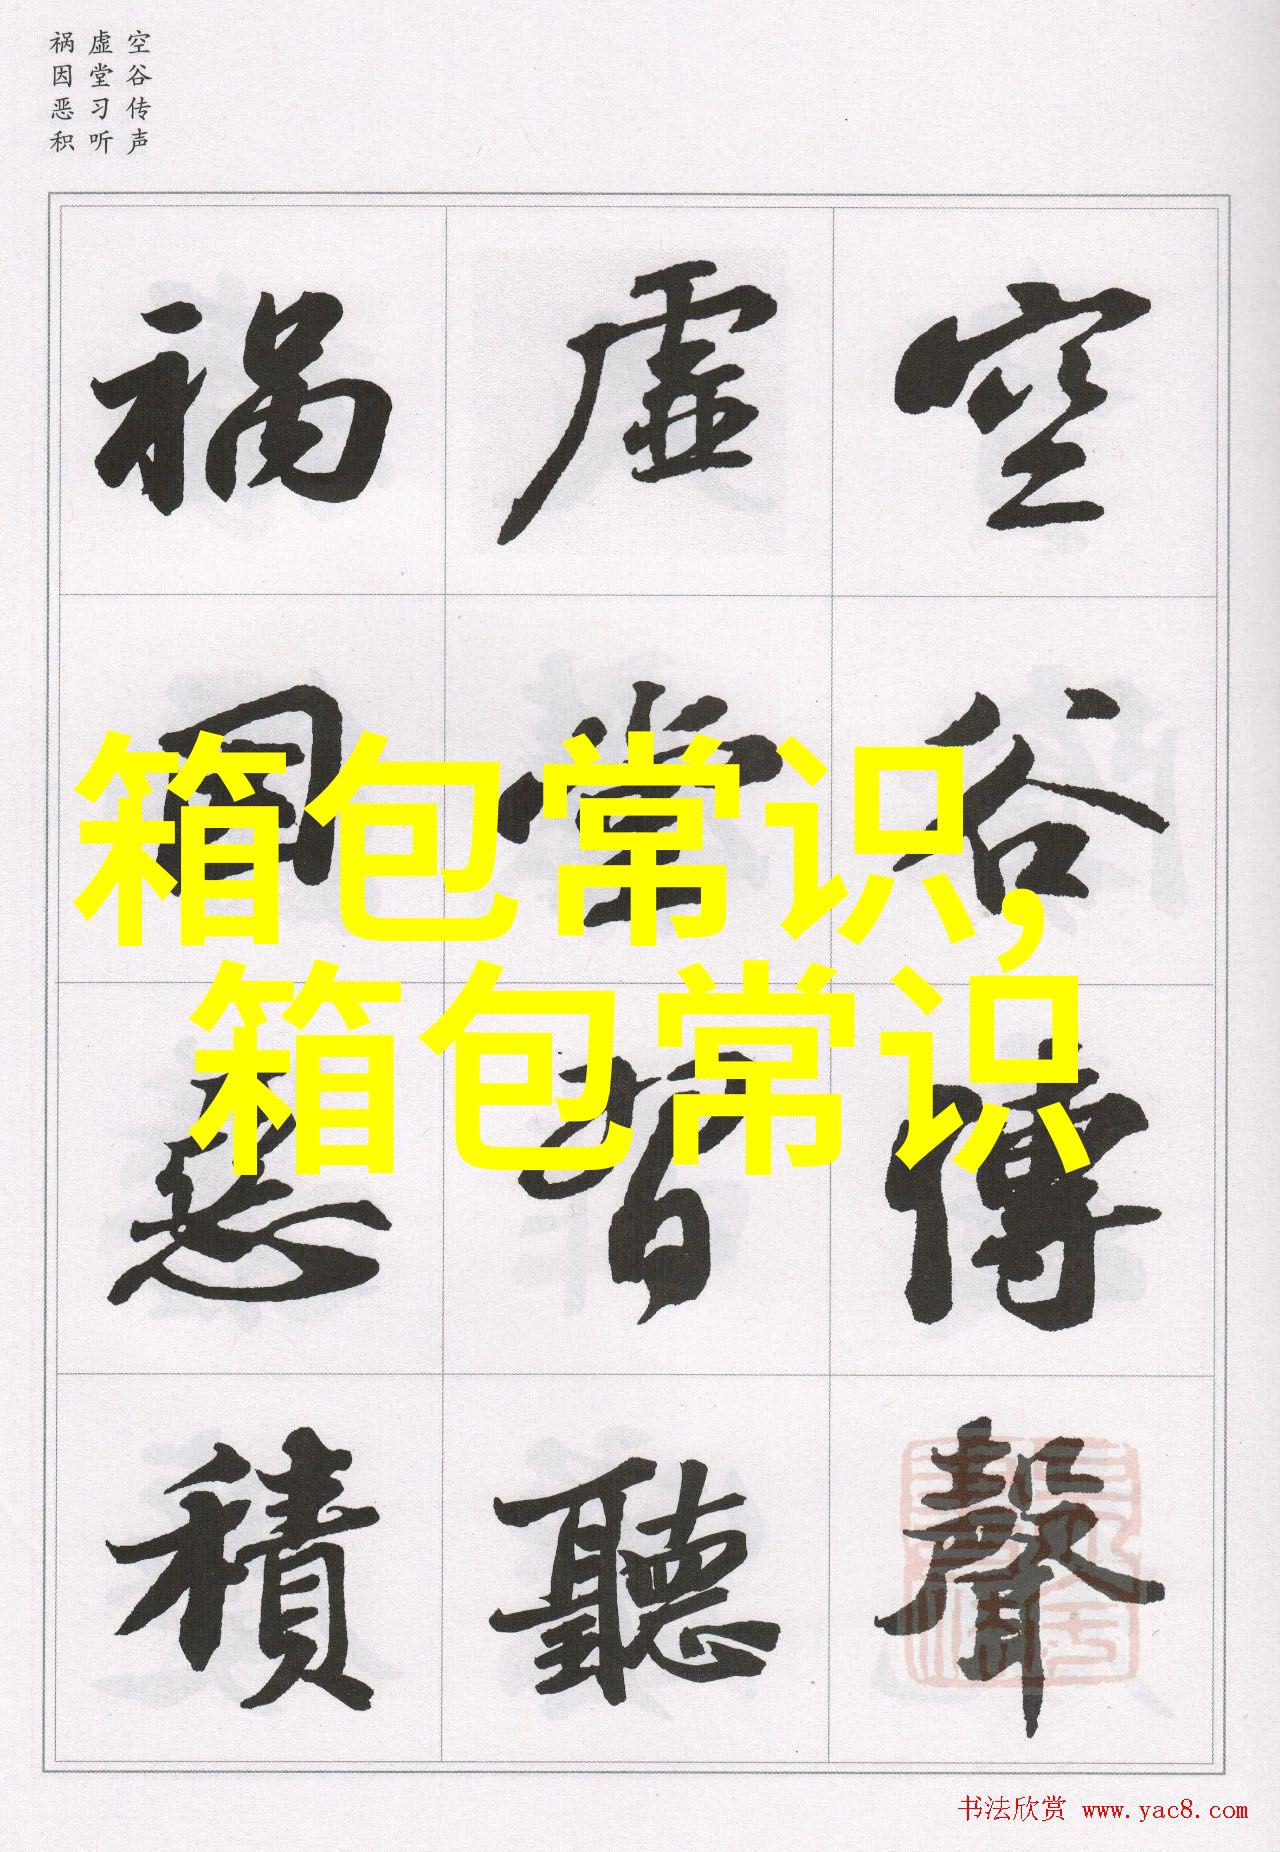 空谷传声
虚堂习听
祸因恶积
空谷傳聲
虚堂習聽
禍因惡積
箱包常识,
箱包常识
书法欣赏 www.yac8.com